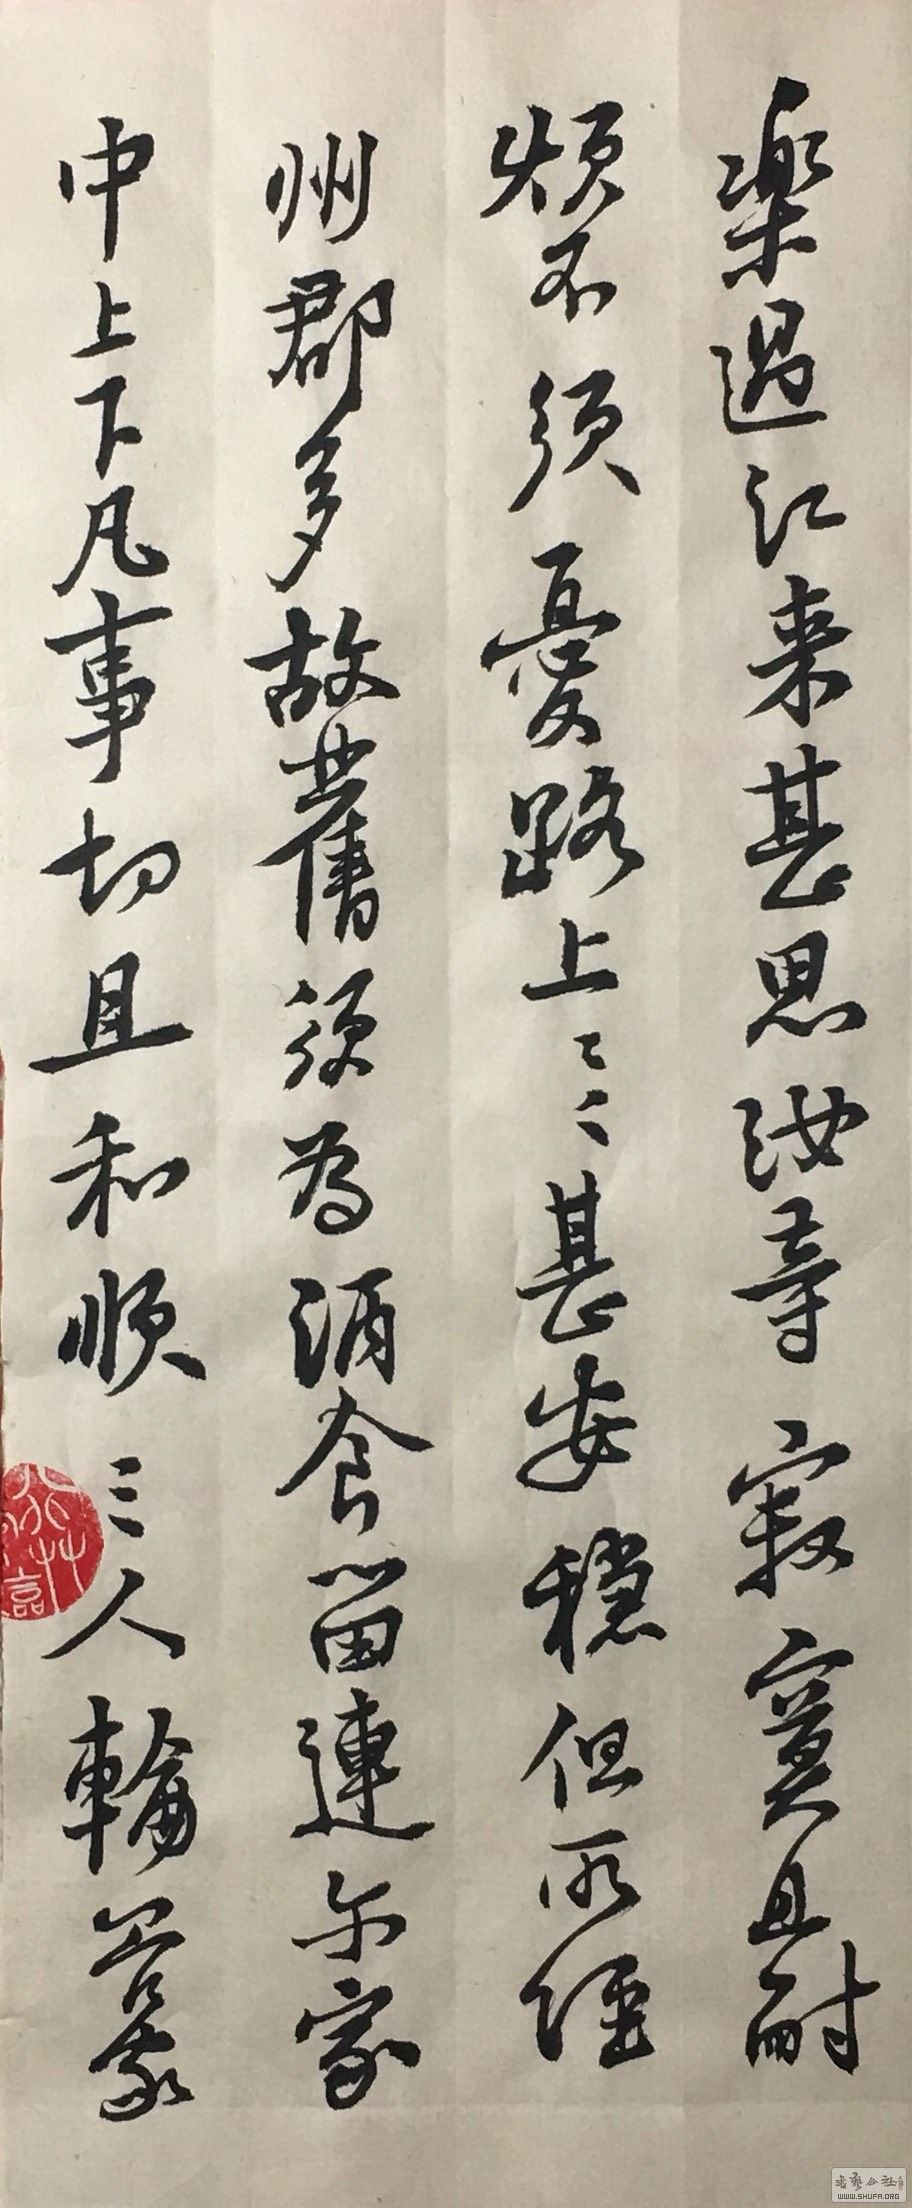 樂過江来甚思汝等寂寞且耐
煩不須憂路上〻甚安穩但所經
州郡多故舊須為酒食留連尔家
中上下凡事切且和順三人輪
書艺公社
WWW.SHUFA.ORG